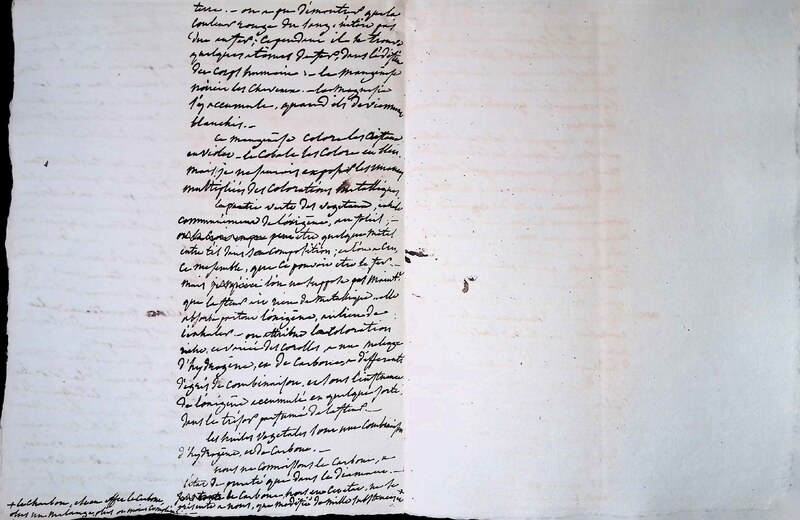 terre. – on a pu démontrer que la
couleur rouge du sang, n'étoit pas
due au fer; cependant il se trouve
quelques atomes de fer, dans l'édifice
du corps humain: – le manganèse
noircit les cheveux. – la magnésie
s'y accumule, quand ils deviennent
blanchis. –
Le manganèse colore les
en violet – le Cobalt les colore en bleu.
mais je ne pourrois exposer les nuances
multipliées des colorations métalliques.
la partie verte des végétaux, exhale
communément de l'oxigène, au soleil; –
peut être quelque métal
entre t'il dans sa composition; et l'on a cru,
ce me semble, que ce pouvoit être le fer. –
mais l'on ne suppose pas maintt.
que la fleur ait rien de métallique. elle
absorbe partout l'oxigène, au lieu de
l'exhaler – on attribue la coloration
riche, et variée des corolles a un mélange
d'hydrogène, et de Carbone, a différents
degrés de combinaison, et sous l'influence
de l'oxigène accumulé en quelque sorte
dans le trésor parfumé de la fleur. –
les huiles végétales sont une combinaison
d'hydrogène, et de Carbone. –
nous ne connoissons le Carbone, a
l'état de pureté que dans le diamant. –
le Carbone, hors en ce, ne se
présente a nous, que modifié de mille substances +
+ le Charbon, et en effet le Carbone,
dans un mélange plus ou moins